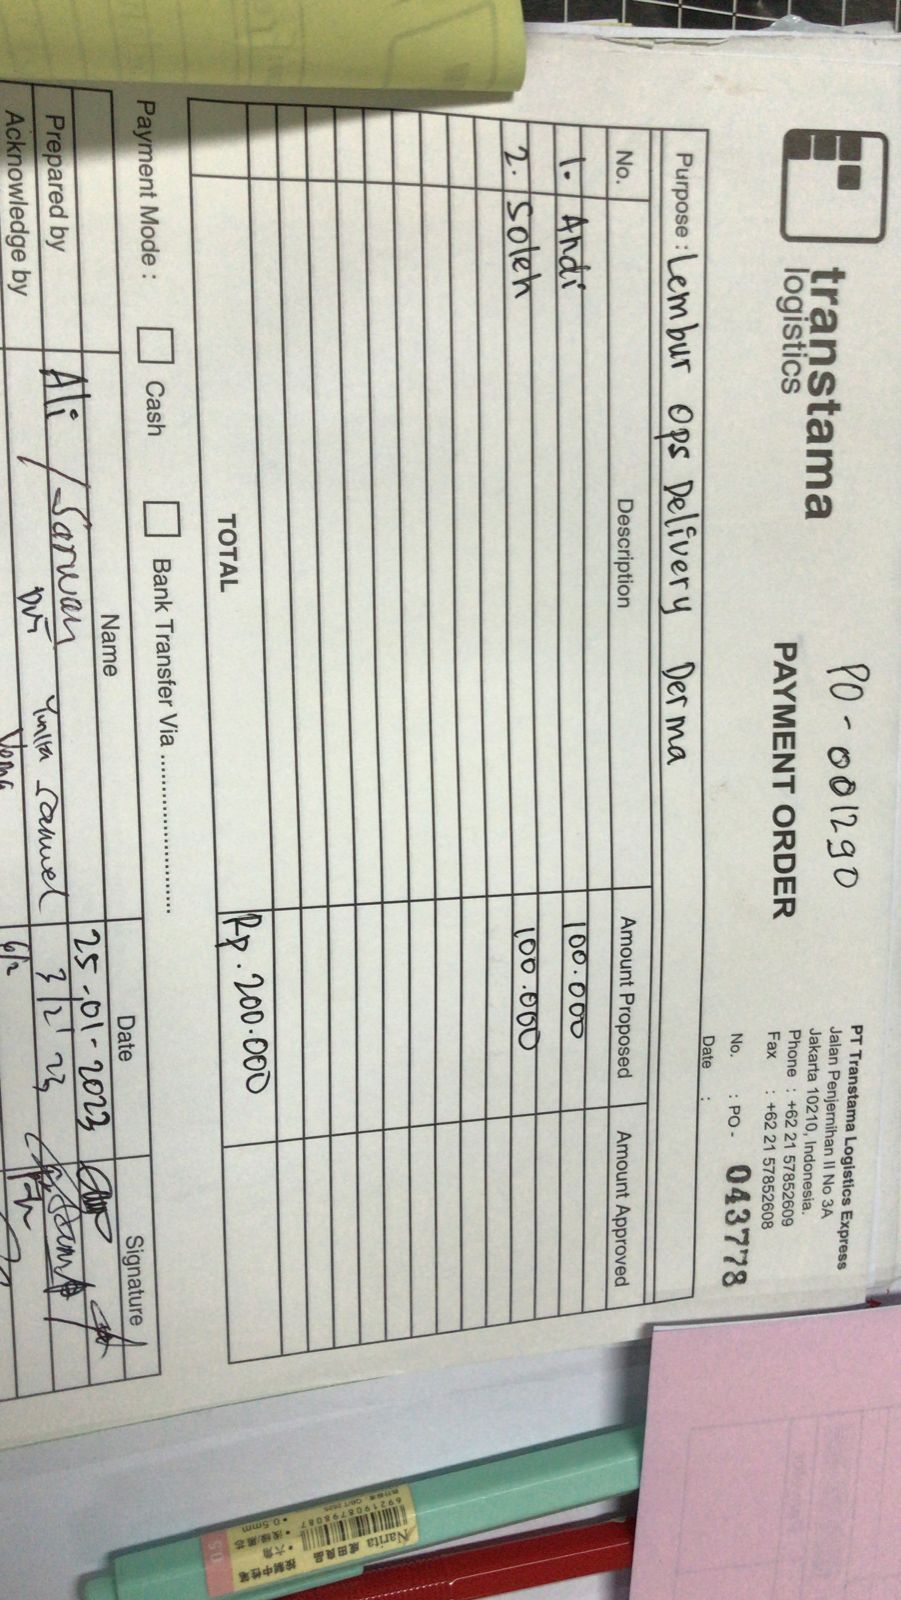 transtama
logistics
PO-001290
PAYMENT ORDER
PT Transtama Logistics Express
Jalan Penjernihan II No 3A
Jakarta 10210, Indonesia.
Phone : +62 21 57852609
Fax : +62 21 57852608
No. : PO - 043778
Date :
Purpose : Lembur Ops Delivery Derma
No. Description Amount Proposed Amount Approved
1. Andi 100.000
2. Soleh 100.000
TOTAL Rp. 200.000
Payment Mode : Cash Bank Transfer Via ......................
Name Date Signature
Prepared by Ali / Sarwan 25-01-2023
Acknowledge by Samuel 3/2'23
6/2
Narita
6921908798087
0.5mm
0.5